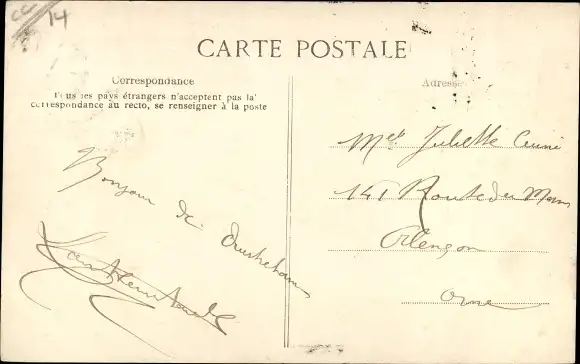 CC
14
CARTE POSTALE
Correspondance
Tous les pays étrangers n'acceptent pas la
correspondance au recto, se renseigner à la poste
Adresse
Bonjour de Ouistreham
Melle Juliette
141 Route du Mans
Alençon
Orne